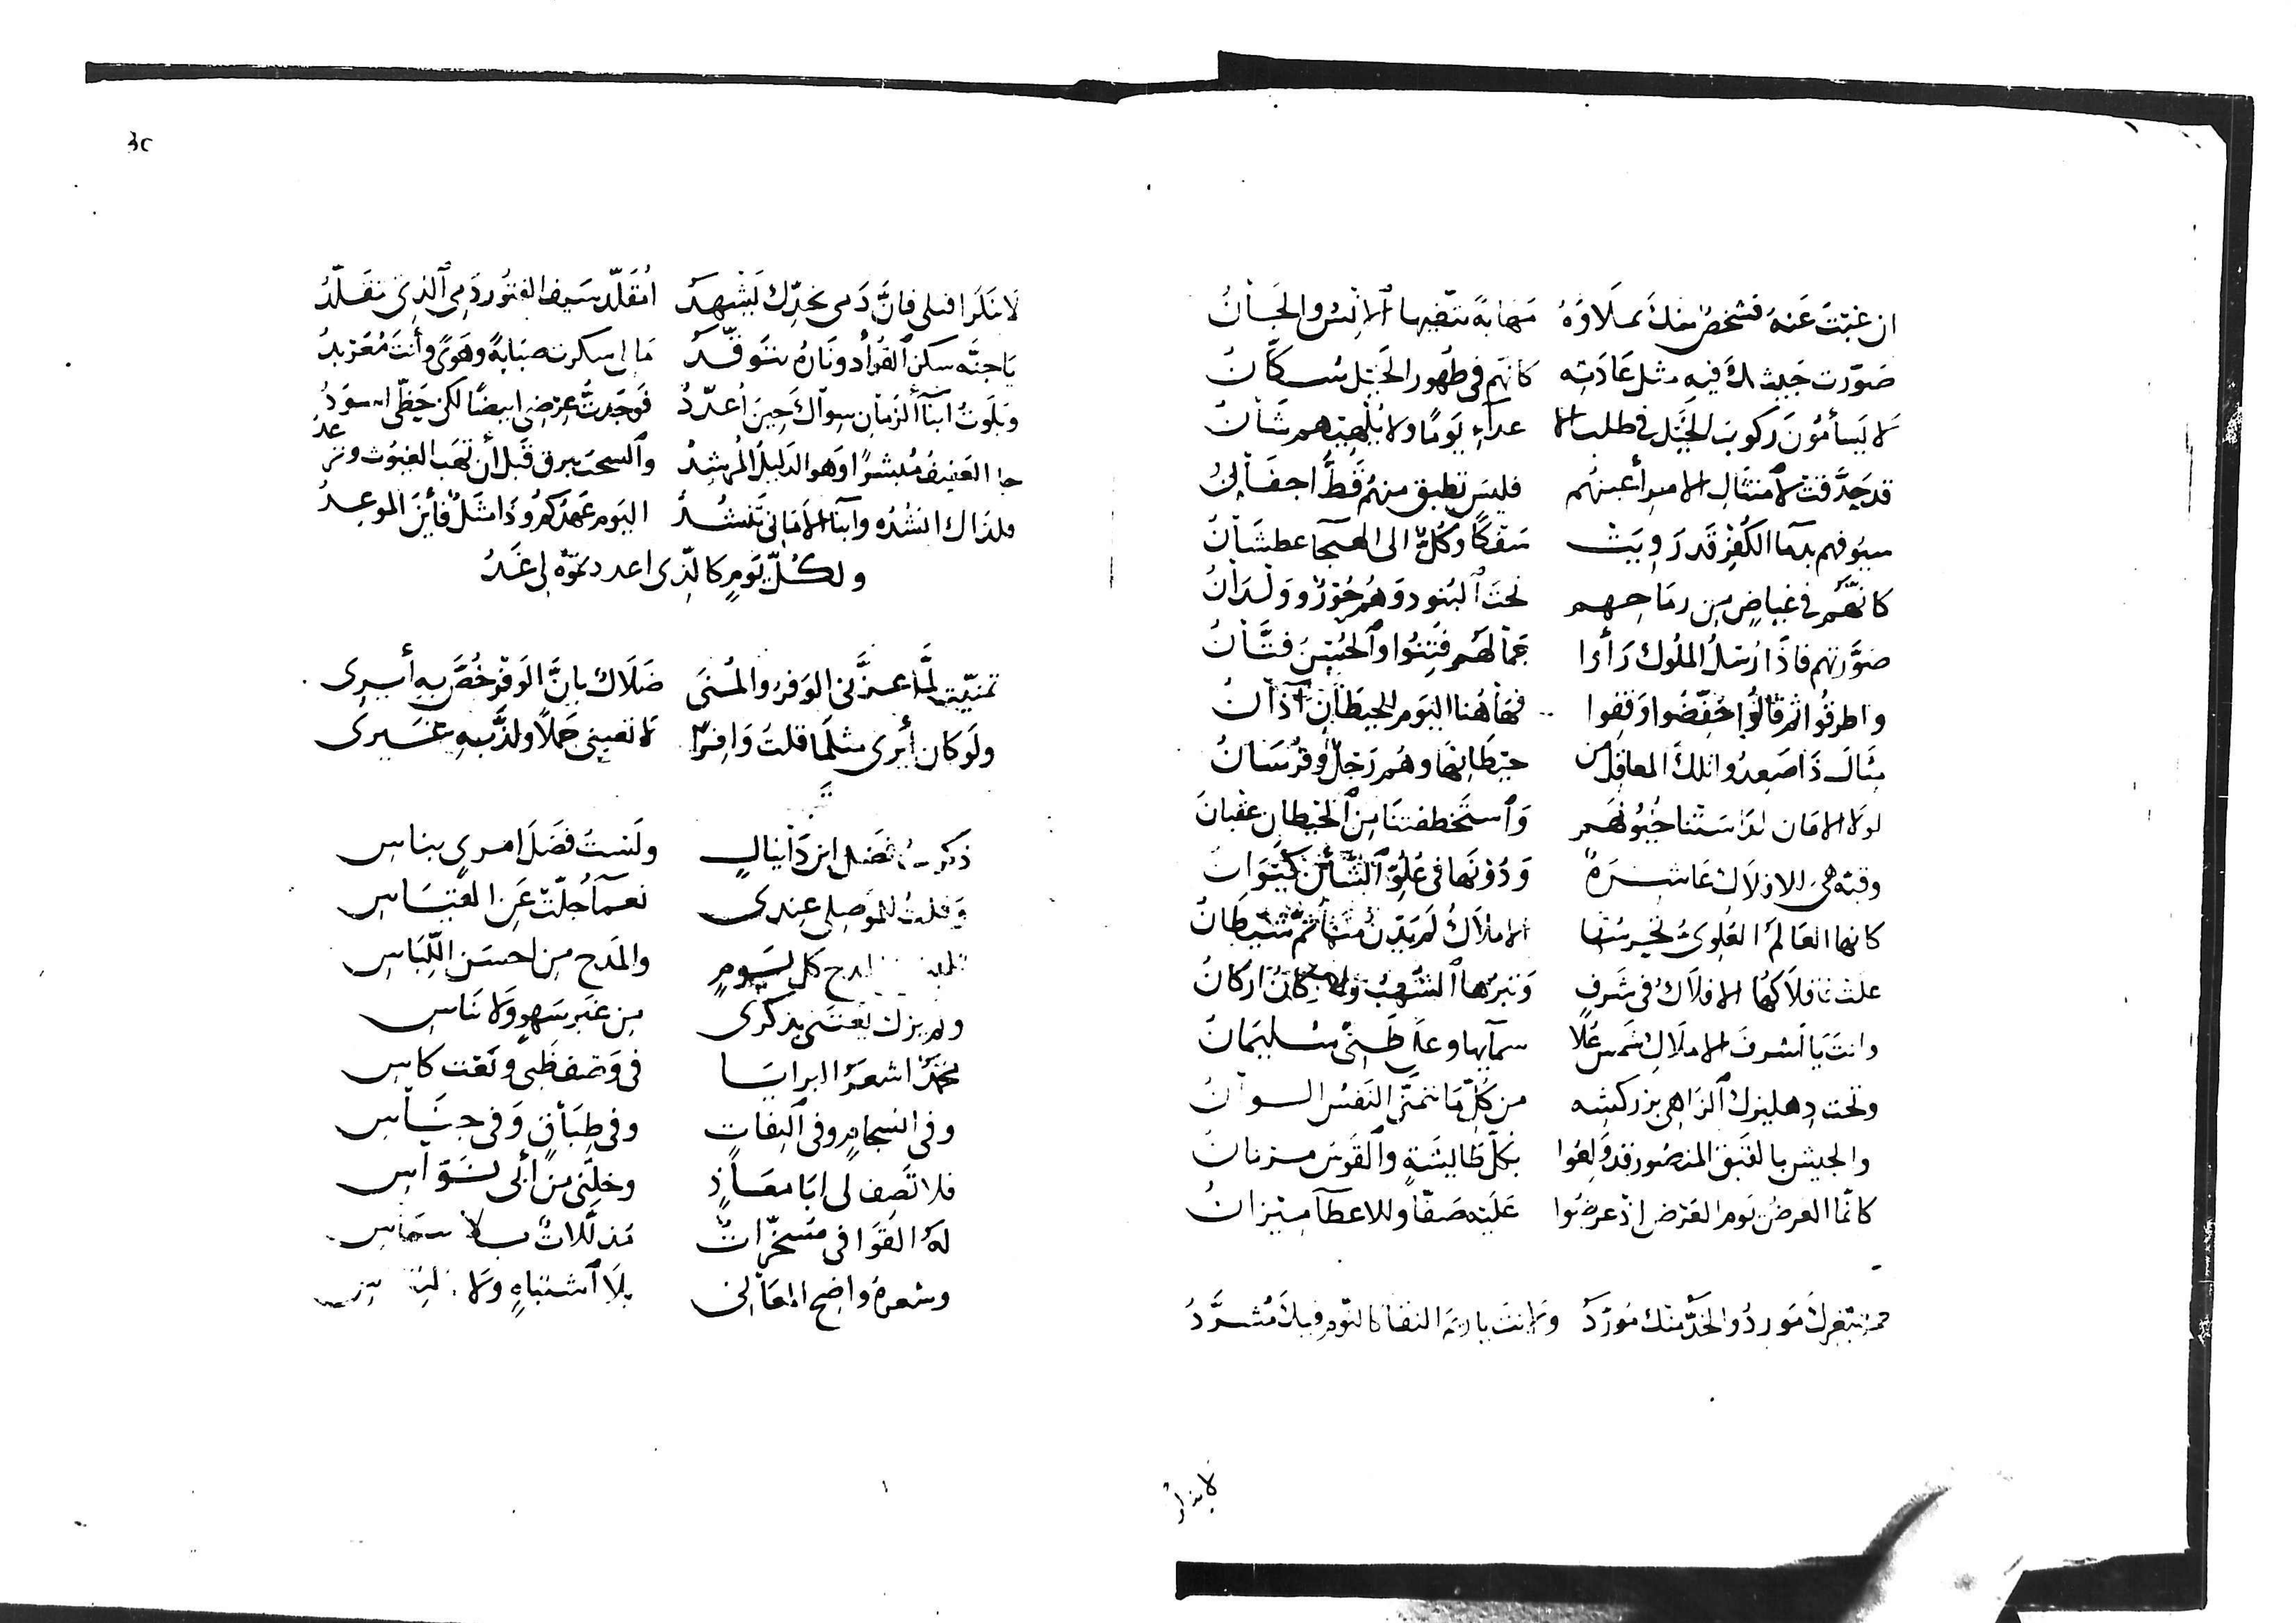 ان غبتَ عَنهُ فشخصٌ منكَ يملاوهُ مهابةً تتّقيها الانِسُ والجَانُ
صَوّرت جَيشك فيه مثل عَادَتِه كانهم في ظهور الخَيْل سُكّانُ
لا يَسأمُونَ رَكوبَ الخَيْل في طلب الاعدآءِ يَومًا ولا يُلهيهم شَانُ
قد حَدَّقت لامتثالِ الامر أعينهم فليسَ تطبق منهُم قَطُّ اجفَانُ
سيُوفهم بدمآ الكُفْر قَد رَويَتْ سَفكًا وكُلٌّ الى الهيجا عطشَانُ
كانّهُم في غيَاضٍ مِن رمَاحهم تحتَ البُنود وَهُم حُورٌ وولْدَانُ
صَوَّرتهم فاذَا رُسْلُ الملُوك رَأَوا جمَالهم فُتِنُوا والحُسْنُ فتَّانُ
واطرقُوا ثم قالوُا خَفِّضُوا وَقفوا فهَا هُنا اليَوم للحيطَانِ آذانُ
مثالَ ذَا صَعِدُوا تلكَ المعَاقل من حيطَانِهَا وهُم رَجلٌ وفُرْسَانُ
لولا الامَان لدَاسَتْنا خُيُولهُم وَاستَخطفتنَا مِنَ الحيطان عقبانُ
وقبّة هيَ للافلاك عَاشرَةٌ وَدُونهَا في عُلُوّ الشَّأنِ كَيْوَانُ
كانها العَالمُ العُلوىُّ تحرسُهَا الاملاكُ لم يَدْنُ منهَا ثمَّ شَيْطَانُ
علت فافلاكهَا الافلاكُ في شَرفٍ وَنيّرُهَا الشُّهبُ والاركَانُ اركانُ
وانتَ يَا اشرفَ الاملاكِ شَمسُ عُلا سمآيها وعَلى ظَنّىْ سُليمَانُ
وتحت دهليزك الزاهى بزركشه من كلّ مَا تتمَنّى النَفسُ الوانُ
والجيش بالقبَق المنصُور قد وَلِعُوا بكلّ طَايشَةٍ والقَوسُ مرنانُ
كانّما العرضُ يَوم العَرْض اذ عرضُوا عَليَه صَفّا وللاعطآ ميْزانُ
من ثغركَ مَوردُ والخَدُّ منك مُوَرَّدُ ولانتَ يا ريم النقَا كالنّوم فيكَ مُشرَّدُ
لا تنكرا
٣٢
لا تنكرَا قتلى فانَّ دَمى بخدِّك يَشْهدُ اتُقَلّد سَيف الفتُور دَمِى الذِى تتقَلّدُ
يَا جنَّه سكن الفُؤاد ونَارُهُ تتوقّدُ مَا لى سكرت صبَابةً وهَوىً وأنتَ مُعَرْبدُ
وبَلوتُ ابنآ الزمَانِ سِواكَ حِينَ اُعدّدُ فوَجَدتُ عِرضى ابيضًا لكن حَظّى اسوَدُ
جا العَفيفُ مُبشرًا وَهو الدَليلُ المُرشِدُ والسحبَ تبرق قَبل أن تهَب الغيُوث وترعدُ
فلذاك انشدُه وابنآ الامَانى تَنشُدُ اليَوم عَهدُكمُ وذا مثَلٌ فأينَ الموعِدُ
ولكُلّ يَومٍ كالّذى اعددتموُه لى غَدُ
تمنيّتُ لمَّا عزَّنى الوَفرُ والمُنىَ ضَلاك بانَّ الوَفرَ خُصَّ بهِ أيرِى
ولَو كان أيرى مثلمَا قلتَ وَافرًا لا تعبنى حَملاً ولذَّ بهِ غَيرِى
ذكرت فضل ابن دَانيَالٍ ولَستُ فضَلَ امرىٍ بناسِ
وَقلتُ للموَصِلى عِندى نعمآ جُلّتْ عَن القيَاسِ
المدح كل يَومٍ والمَدح مِن احسَن اللّبَاسِ
ولم يزل يعتنى بذكرى مِن غَير سَهوٍ وَلا نَاسِ
محمّدٌ اشعَرُ البرايَا فى وَصف ظَبىٍ ونَعْت كاسِ
وفى انسجامٍ وفى التِفاتٍ وفى طِبَاقٍ وَفى جنَاسِ
فلا تَصِف لى ابَا معَاذٍ وخلِّنى مِن أبى نوَاسِ
لهُ القَوَافى مُسَخّراتٌ مُذلّلاتٌ بلا شماسِ
وشعرهُ واضِح المَعَانى بلَا اشتباهٍ ولا